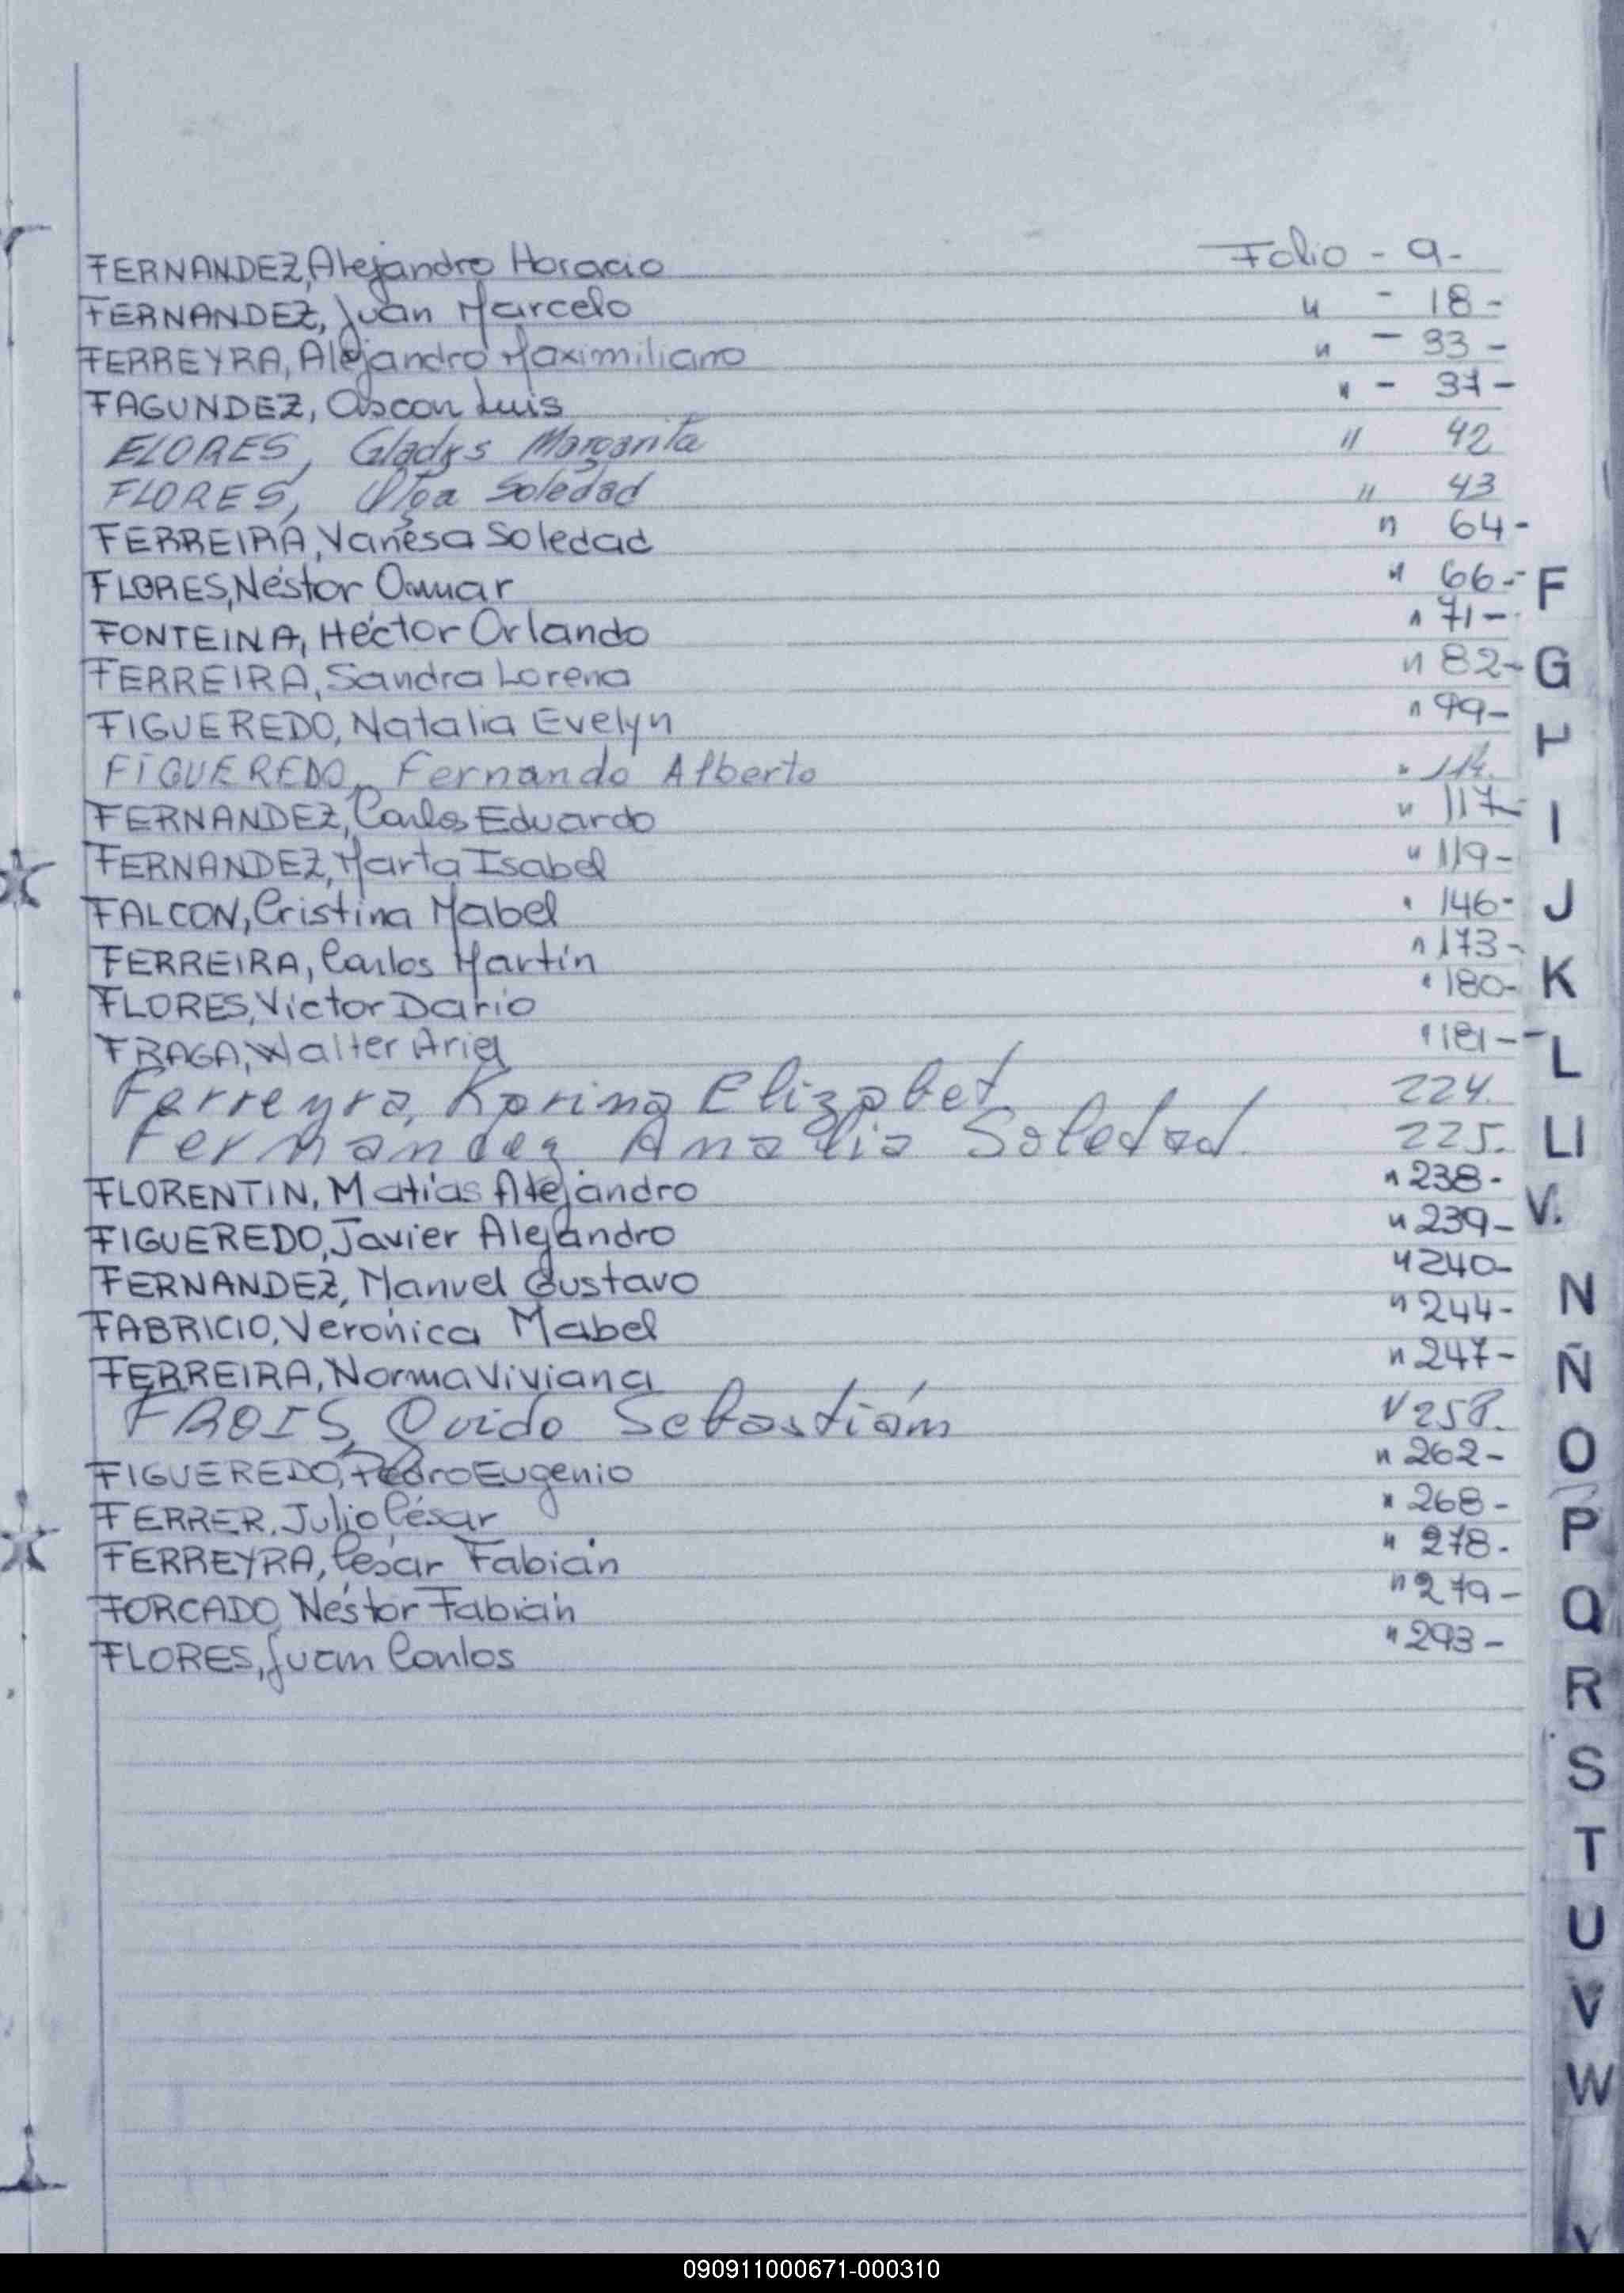 FERNANDEZ, Alejandro Horacio Folio - 9 -
FERNANDEZ, Juan Marcelo " - 18 -
FERREYRA, Alejandro Maximiliano " - 33 -
FAGUNDEZ, Oscar Luis " - 37 -
FLORES, Gladys Margarita " 42
FLORES, Olga Soledad " 43
FERREIRA, Vanesa Soledad " 64 -
FLORES, Néstor Omar " 66 -
FONTEINA, Héctor Orlando " 71 -
FERREIRA, Sandra Lorena " 82 -
FIGUEREDO, Natalia Evelyn " 99 -
FIGUEREDO, Fernando Alberto " 114.
FERNANDEZ, Carlos Eduardo " 117 -
FERNANDEZ, Marta Isabel " 119 -
FALCON, Cristina Mabel " 146 -
FERREIRA, Carlos Martín " 173 -
FLORES, Victor Dario " 180 -
FRAGA, Walter Ariel " 181 -
Ferreyra, Karina Elizabet 224.
Fernandez Analia Soledad. 225.
FLORENTIN, Matías Alejandro " 238 -
FIGUEREDO, Javier Alejandro " 239 -
FERNANDEZ, Manuel Gustavo " 240 -
FABRICIO, Verónica Mabel " 244 -
FERREIRA, Norma Viviana " 247 -
FROIS, Ovido Sebastián " 258.
FIGUEREDO, Pedro Eugenio " 262 -
FERRER, Julio César " 268 -
FERREYRA, César Fabián " 278 -
FORCADO, Néstor Fabián " 279 -
FLORES, Juan Carlos " 293 -
F
G
H
I
J
K
L
Ll
V.
N
Ñ
O
P
Q
R
S
T
U
V
W
Y
090911000671-000310